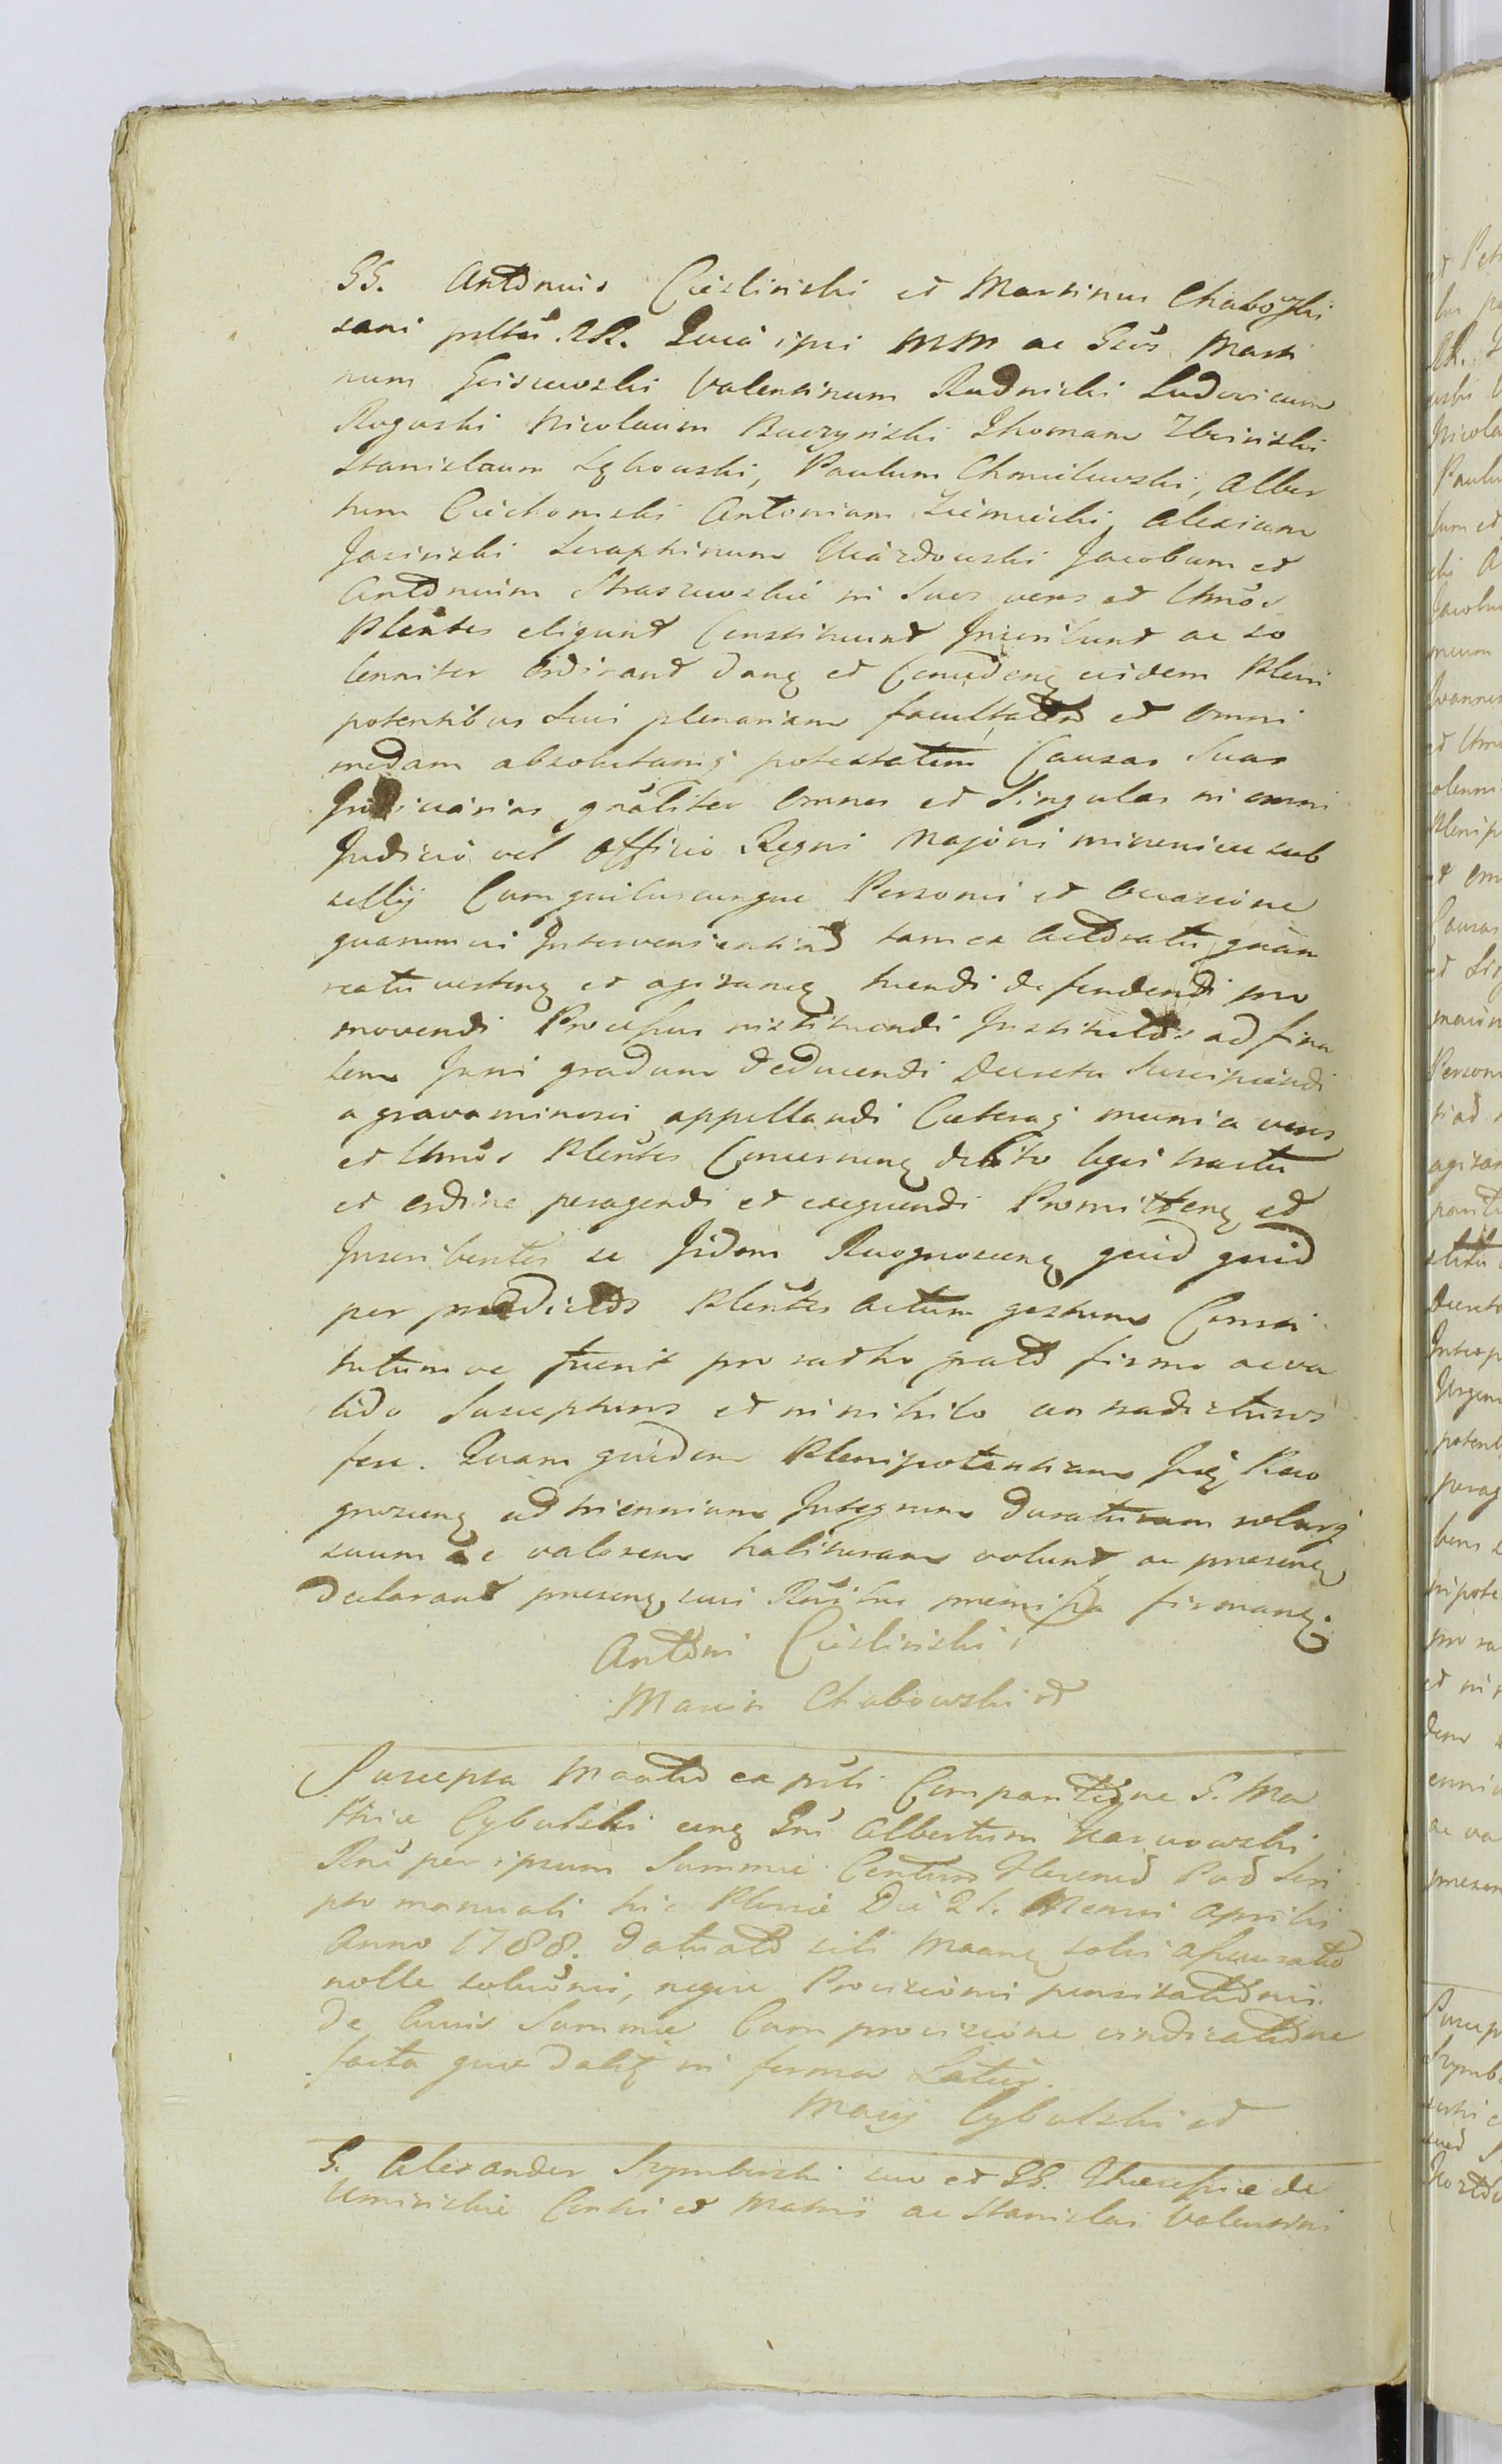 GG. Antonius Cieslinski et Martinus Chabowski
sani prltũ. RR. Quia ipsi MM ac Grős Marti
num Goiszewski Valentinum Rudnicki Ludovicum
Rogaski Nicolaum Baczynski Thomam Zbinski
Stanislaum Lękowski, Paulum Chmielewski, Alber
tum Ciechomski Antonium Ziemiecki, Alexium
Jasinski Seraphinum Uiazdowski Jacobum et
Antonium Straszewskie in Suos veros et lttmős
Plentes eligunt Constituunt Inscribunt ac so
lenniter Ordinant Danq et Concedenq eisdem Pleni
potentibus Suis plenariam facultatem et omni
modam absolutamq potestatem Causas Suas
Juridicarias grãliter omnes et Singulas in omni
Judicio vel Officio Regni Majoris minorisve sub
sellij Cum quibuscunque Personis et Occasione
quarumvis Intervenientiad tam ex Actoratu, quàm
reatu vertenq et agitanq tuendi defendendi pro
movendi Processus instituendi Institutos ad fina
lem Juris gradum deducendi Decreta Suscipiendi
a gravaminosis appellandi Caeteraq munia veros
et lttmős Plentes Concernenq debito legis tractu
et ordine peragendi et exequendi Promittenq et
Inscribentes se Iidem Recognoscenq quid quid
per praedictos Plentes actum gestum Consti
tutumve fuerit pro ratho grato firmo ac va
lido Suscepturos et in nihilo contradicturos
fore. Quam quidem Plenipotentiam Iiq Reco
gnoscenq ad triennium Integrum duraturam roburq
suum ac valorem habituram volunt, ac presenq
declarant presenq suis Rőibus premissa firmanq.
Antoni Cieslinski
Marcin Chabowski et
Suscepta Manto ex prti Comparitione G. Ma
thiae Cybulski cunq Gnũ Albertum Karwowski
Rnẽ per ipsum Summae Centum Florenod Pod Scri
pto manuali hic Plonie Die 21. Mensis Aprilis
Anno 1788. datuato sibi Manenq solvi assecurato
nolle soluõnis, neque Provisionis pensitationis
De Cuius Summae Cum provisione vindicatione
facta quae dabit in forma Latius.
Maciej Cybulski et
G. Alexander Szymborski suo et GG. Theressiae de
Uminskie Contis et Matris ac Stanislai Valentini